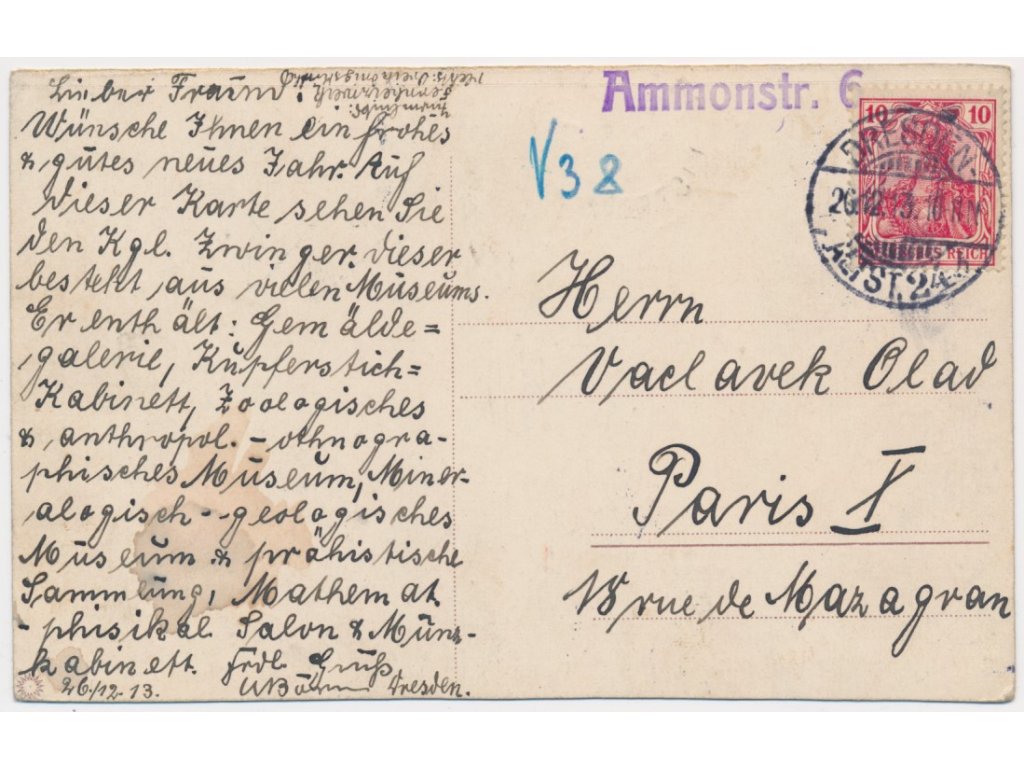 Lieber Freund!
Wünsche Ihnen ein frohes
& gutes neues Jahr. Auf
dieser Karte sehen Sie
den Kgl. Zwinger. dieser
besteht aus vielen Museums.
Er enthält: Gemälde=
galerie, Kupferstich=
Kabinett, Zoologisches
& anthropol. - othnogra-
phisches Museum, Miner-
alogisch - geologisches
Museum & prähistische
Sammlung, Mathemat.
- phisikal Salon & Münz-
kabinett. frdl. Gruß
26./12. 13. Dresden.
Ammonstr. 6
V38
10 10
DRESDEN
26.12.13. 10
ALTST. 24
REICH
Herrn
Vaclavek Olad
Paris X
18 rue de Mazagran